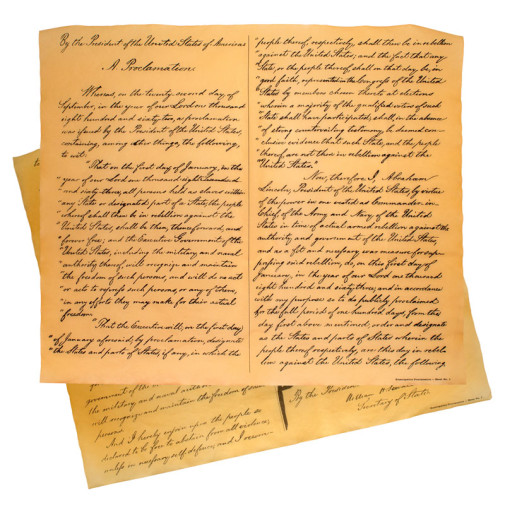 By the President of the United States of America:
A Proclamation.
Whereas, on the twenty-second day of
September, in the year of our Lord one thousand
eight hundred and sixty-two, a proclamation
was issued by the President of the United States,
containing, among other things, the following,
to wit:
"That on the first day of January, in the
year of our Lord one thousand eight hundred
and sixty-three, all persons held as slaves within
any State or designated part of a State, the people
whereof shall then be in rebellion against the
United States, shall be then, thenceforward, and
forever free; and the Executive Government of the
United States, including the military and naval
authority thereof, will recognize and maintain
the freedom of such persons, and will do no act
or acts to repress such persons, or any of them,
in any efforts they may make for their actual
freedom.
"That the Executive will, on the first day
of January aforesaid, by proclamation, designate
the States and parts of States, if any, in which the
people thereof, respectively, shall then be in rebellion
against the United States; and the fact that any
State, or the people thereof, shall on that day be, in
good faith, represented in the Congress of the United
States by members chosen thereto at elections
wherein a majority of the qualified voters of such
State shall have participated, shall, in the absence
of strong countervailing testimony, be deemed con-
clusive evidence that such State, and the people
thereof, are not then in rebellion against the
United States."
Now, therefore I, Abraham
Lincoln, President of the United States, by virtue
of the power in me vested as Commander-in-
Chief, of the Army and Navy of the United
States in time of actual armed rebellion against the
authority and government of the United States,
and as a fit and necessary war measure for sup-
pressing said rebellion, do, on this first day of
January, in the year of our Lord one thousand
eight hundred and sixty-three, and in accordance
with my purpose so to do publicly proclaimed
for the full period of one hundred days, from the
day first above mentioned, order and designate
as the States and parts of States wherein the
people thereof respectively, are this day in rebel-
lion against the United States, the following
government of the United States
the military and naval
will recognize and maintain the freedom of said
persons.
And I hereby enjoin upon the people so
declared to be free to abstain from all violence,
unless in necessary self-defence; and I recom-
By the President
William H. Seward
Secretary of State